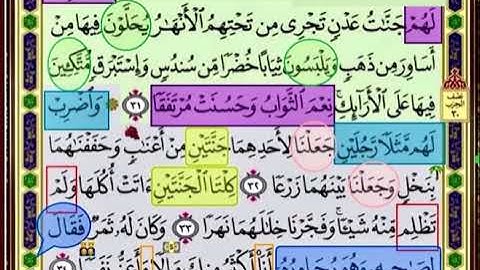 لَهُمْ جَنَّٰتُ عَدْنٍ تَجْرِى مِن تَحْتِهِمُ ٱلْأَنْهَٰرُ يُحَلَّوْنَ فِيهَا مِنْ
أَسَاوِرَ مِن ذَهَبٍ وَيَلْبَسُونَ ثِيَابًا خُضْرًا مِّن سُندُسٍ وَإِسْتَبْرَقٍ مُّتَّكِـِٔينَ
فِيهَا عَلَى ٱلْأَرَآئِكِ ۚ نِعْمَ ٱلثَّوَابُ وَحَسُنَتْ مُرْتَفَقًا ٣١ وَٱضْرِبْ
لَهُم مَّثَلًا رَّجُلَيْنِ جَعَلْنَا لِأَحَدِهِمَا جَنَّتَيْنِ مِنْ أَعْنَٰبٍ وَحَفَفْنَٰهُمَا
بِنَخْلٍ وَجَعَلْنَا بَيْنَهُمَا زَرْعًا ٣٢ كِلْتَا ٱلْجَنَّتَيْنِ ءَاتَتْ أُكُلَهَا وَلَمْ
تَظْلِم مِّنْهُ شَيْـًٔا ۚ وَفَجَّرْنَا خِلَٰلَهُمَا نَهَرًا ٣٣ وَكَانَ لَهُۥ ثَمَرٌ فَقَالَ
لِصَٰحِبِهِۦ وَهُوَ يُحَاوِرُهُۥٓ أَنَا۠ أَكْثَرُ مِنكَ مَالًا وَأَعَزُّ نَفَرًا ٣٤
نصف
الحزب
٣٠